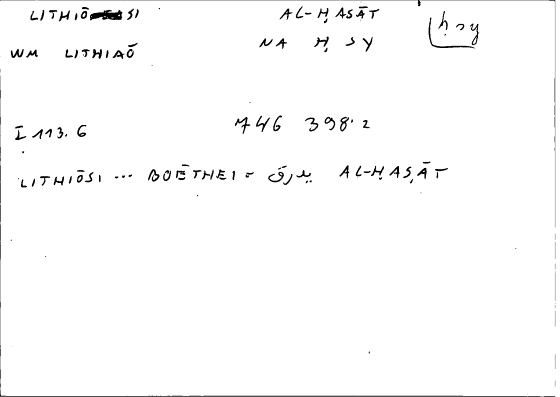 LITHIŌSI AL-ḤASĀT ḥsy
WM LITHIAŌ NA Ḥ S Y
I 113.6 746 398.2
LITHIŌSI ... BOĒTHEI = يدرق AL-ḤAṢĀT